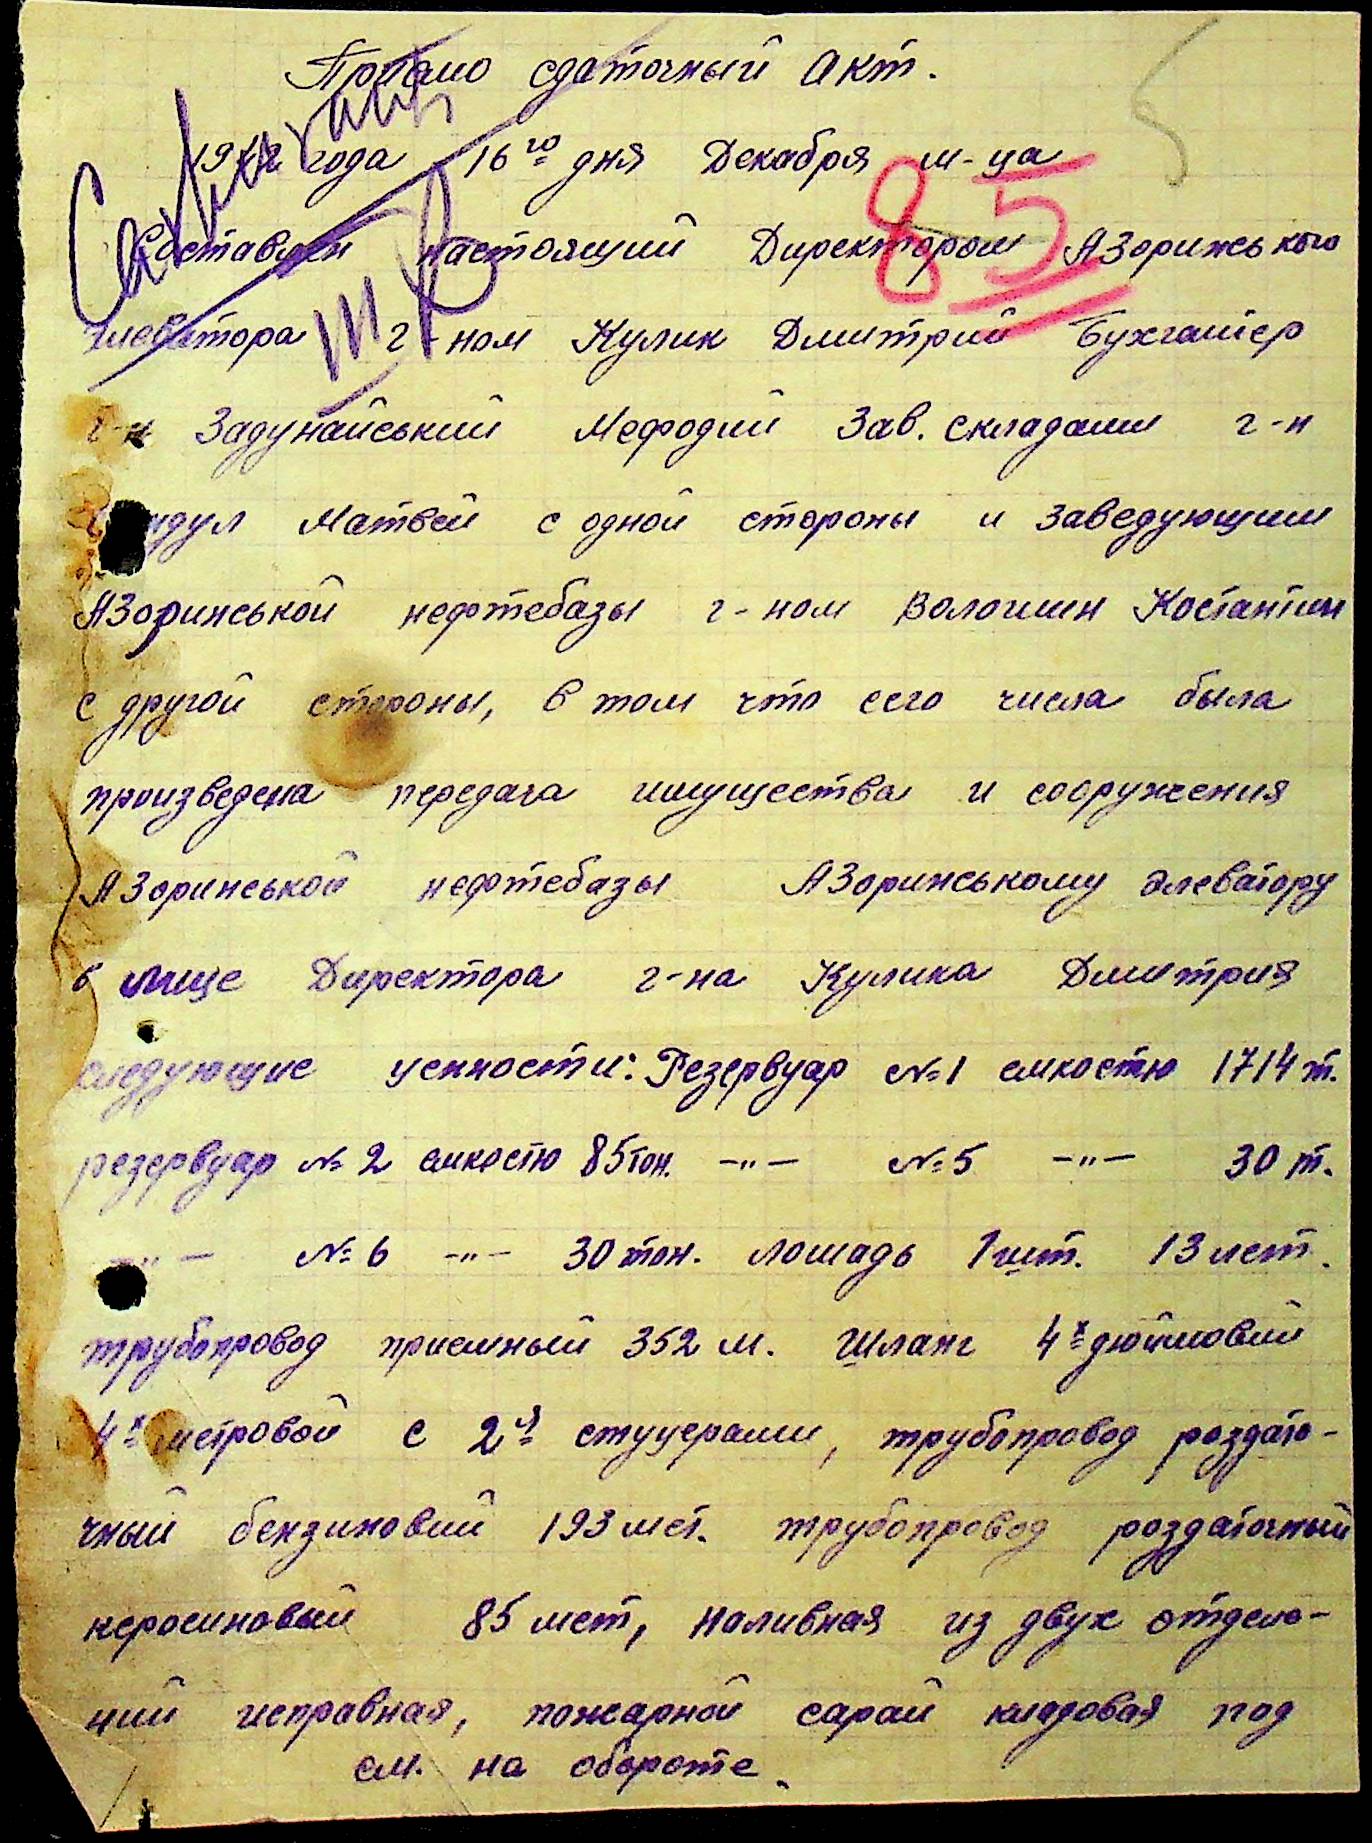 Приемо сдаточный Акт.
5
1942 года 16го дня Декабря м-ца
85
Составлен настоящий Директором Азорижського
элеватора г-ном Кулик Дмитрий Бухгалтер
г-н Задунайський Мефодий Зав. складами г-н
Матвей с одной стороны и Заведующим
Азоринськой нефтебазы г-ном Волошин Костантин
с другой стороны, в том что сего числа была
произведена передача имущества и сооружения
Азоринськой нефтебазы Азоринському элеватору
в лице Директора г-на Кулика Дмитрия
следующие ценности: Резервуар №1 емкостю 1714 т.
резервуар № 2 емкостю 85 тон. -"- №5 -"- 30 т.
-"- № 6 -"- 30 тон. лошадь 1 шт. 13 лет.
трубопровод приемный 352 м. Шланг 4х дюймовий
4х метровой с 2я стуцерами, трубопровод роздато-
чный бензиновий 193 мет. трубопровод роздаточный
керосиновый 85 мет, наливная из двух отделе-
ний исправная, пожарной сарай кладовая под
см. на обороте.